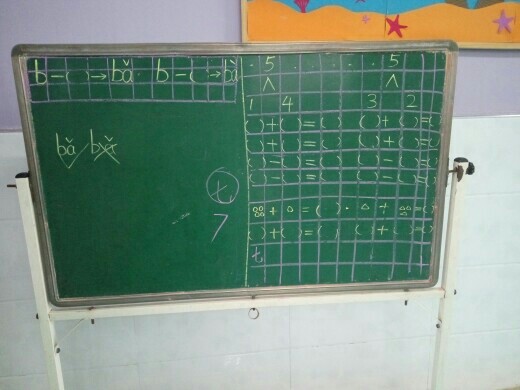 b-( )→bǎ b-( )→bà
bǎ
5 5
∧ ∧
1 4 3 2
( )+( )=( ) ( )+( )=( )
( )+( )=( ) ( )+( )=( )
( )-( )=( ) ( )-( )=( )
( )-( )=( ) ( )-( )=( )
+ =( ) + =( )
( )+( )=( ) ( )+( )=( )
t
t
7